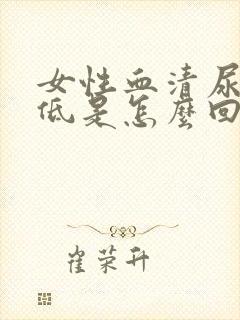 女性血清尿
低是怎麼回
崔荣升